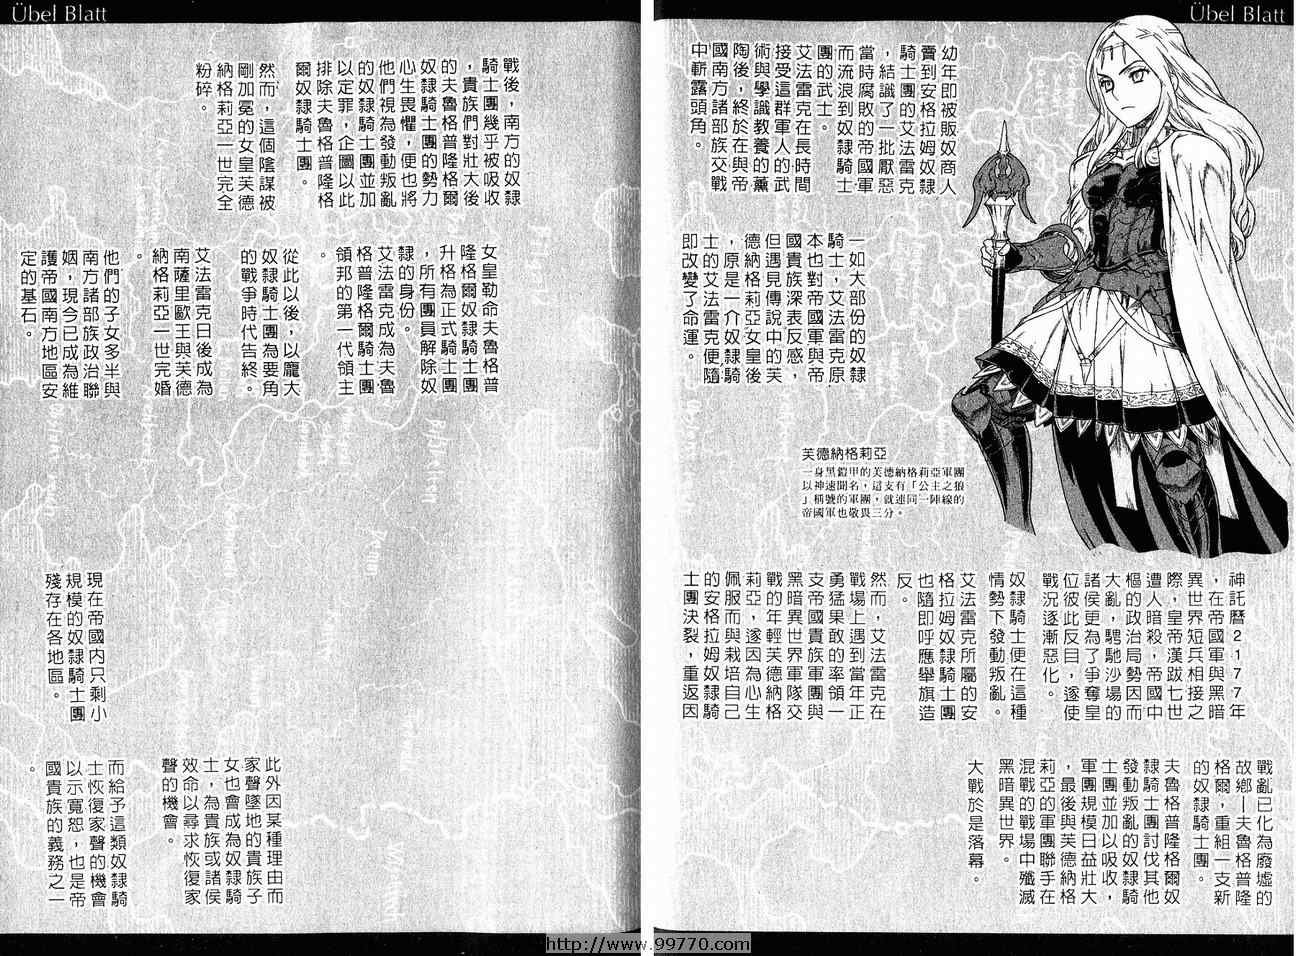 Übel Blatt
Übel Blatt
幼年即被販奴商人
賣到安格拉姆奴隸
騎士團的艾法雷克
，結識了一批厭惡
當時腐敗的帝國軍
而流浪到奴隸騎士
團的武士。
艾法雷克在長時間
接受這群軍人的武
術與學識教養的薰
陶後，終於在與帝
國南方諸部族交戰
中嶄露頭角。
一如大部份的奴隸
騎士，艾法雷克原
本也對帝國軍與帝
國貴族深表反感，
但遇見傳說中的芙
德納格莉亞女皇後
，原是一介奴隸騎
士的艾法雷克便隨
即改變了命運。
芙德納格莉亞
一身黑鎧甲的芙德納格莉亞軍團
以神速聞名，這支有「公主之狼
」稱號的軍團，就連同一陣線的
帝國軍也敬畏三分。
神託曆２１７７年
，在帝國軍與黑暗
異世界短兵相接之
際，皇帝漢跋七世
遭人暗殺，帝國中
樞的政治局勢因而
大亂，騁馳沙場的
諸侯更為了爭奪皇
位彼此反目，遂使
戰況逐漸惡化。
奴隸騎士便在這種
情勢下發動叛亂。
艾法雷克所屬的安
格拉姆奴隸騎士團
也隨即呼應舉旗造
反。
然而，艾法雷克在
戰場上遇到當年正
勇猛果敢的率領一
支帝國貴族軍團與
黑暗異世界軍隊交
戰的年輕芙德納格
莉亞，遂因為心生
佩服而與栽培自己
的安格拉姆奴隸騎
士團決裂，重返因
戰亂已化為廢墟的
故鄉－夫魯格普隆
格爾，重組一支新
的奴隸騎士團。
夫魯格普隆格爾奴
隸騎士團討伐其他
發動叛亂的奴隸騎
士團並加以吸收，
軍團規模日益壯大
，最後與芙德納格
莉亞的軍團聯手在
混戰的戰場中殲滅
黑暗異世界。
大戰於是落幕。
戰後，南方的奴隸
騎士團幾乎被吸收
，貴族們對壯大後
的夫魯格普隆格爾
奴隸騎士團的勢力
心生畏懼，便也將
他們視為發動叛亂
的奴隸騎士團並加
以定罪，企圖以此
排除夫魯格普隆格
爾奴隸騎士團。
然而，這個陰謀被
剛加冕的女皇芙德
納格莉亞一世完全
粉碎。
女皇勒命夫魯格普
隆格爾奴隸騎士團
升格為正式騎士團
，所有團員解除奴
隸的身份。
艾法雷克成為夫魯
格普隆格爾騎士團
領邦的第一代領主
。
從此以後，以龐大
奴隸騎士團為要角
的戰爭時代告終。
艾法雷克日後成為
南薩里歐王與芙德
納格莉亞一世完婚
。
他們的子女多半與
南方諸部族政治聯
姻，現今已成為維
護帝國南方地區安
定的基石。
現在帝國內只剩小
規模的奴隸騎士團
殘存在各地區。
此外因某種理由而
家聲墜地的貴族子
女也會成為奴隸騎
士，為貴族或諸侯
效命以尋求恢復家
聲的機會。
而給予這類奴隸騎
士恢復家聲的機會
以示寬恕，也是帝
國貴族的義務之一
。
http://www.99770.com